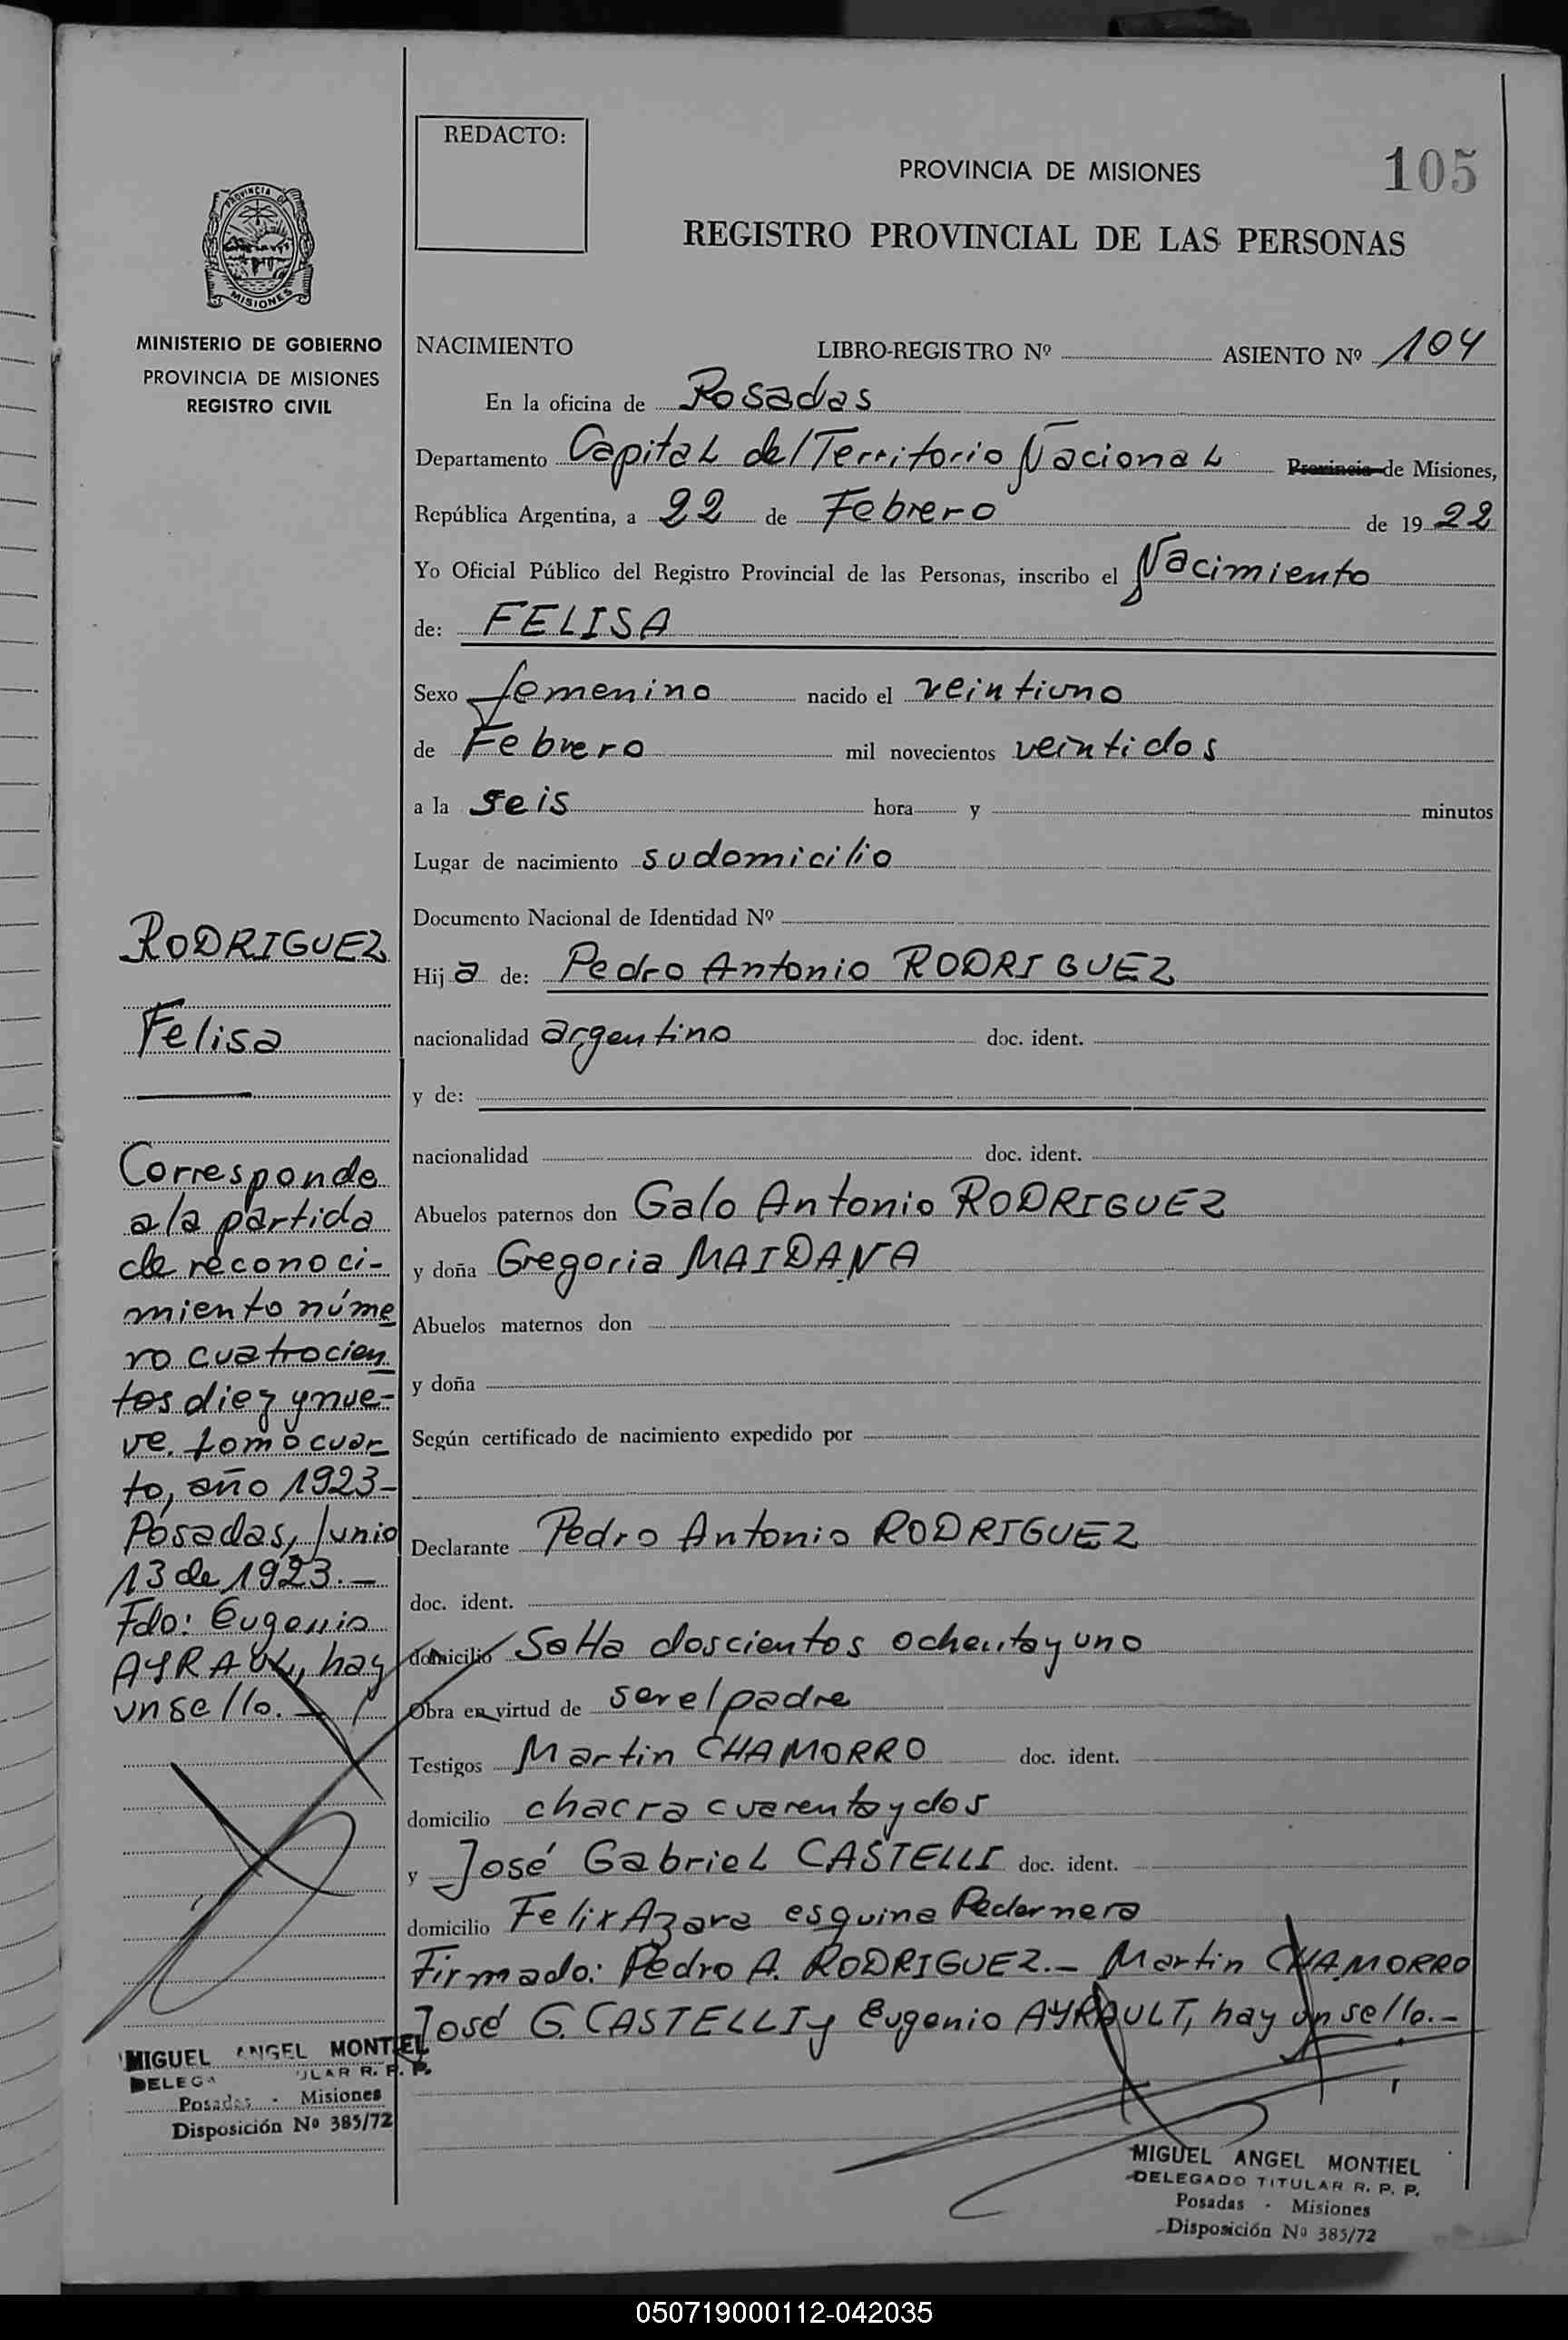 REDACTO:
PROVINCIA DE MISIONES
105
REGISTRO PROVINCIAL DE LAS PERSONAS
PROVINCIA DE
MISIONES
MINISTERIO DE GOBIERNO
PROVINCIA DE MISIONES
REGISTRO CIVIL
NACIMIENTO LIBRO-REGISTRO Nº ASIENTO Nº 104
En la oficina de Posadas
Departamento Capital del Territorio Nacional Provincia de Misiones,
República Argentina, a 22 de Febrero de 1922
Yo Oficial Público del Registro Provincial de las Personas, inscribo el Nacimiento
de: FELISA
Sexo femenino nacido el veintiuno
de Febrero mil novecientos veintidos
a la seis hora y minutos
Lugar de nacimiento su domicilio
Documento Nacional de Identidad Nº
Hija de: Pedro Antonio RODRIGUEZ
nacionalidad argentino doc. ident.
y de:
nacionalidad doc. ident.
Abuelos paternos don Galo Antonio RODRIGUEZ
y doña Gregoria MAIDANA
Abuelos maternos don
y doña
Según certificado de nacimiento expedido por
Declarante Pedro Antonio RODRIGUEZ
doc. ident.
domicilio Salta doscientos ochenta y uno
Obra en virtud de ser el padre
Testigos Martin CHAMORRO doc. ident.
domicilio chacra cuarenta y dos
y José Gabriel CASTELLI doc. ident.
domicilio Felix Azara esquina Pedernera
Firmado: Pedro A. RODRIGUEZ.- Martin CHAMORRO
José G. CASTELLI y Eugenio AYRAULT, hay un sello.-
MIGUEL ANGEL MONTIEL
DELEGADO TITULAR R. P. P.
Posadas - Misiones
Disposición Nº 385/72
RODRIGUEZ
Felisa
Corresponde
a la partida
de reconoci-
miento núme
ro cuatrocien
tos diez y nue-
ve. tomo cuar
to, año 1923-
Posadas, Junio
13 de 1923.-
Fdo: Eugenio
hay
un sello.-
MIGUEL ANGEL MONTIEL
R. P. P.
Posadas - Misiones
Disposición Nº 385/72
050719000112-042035